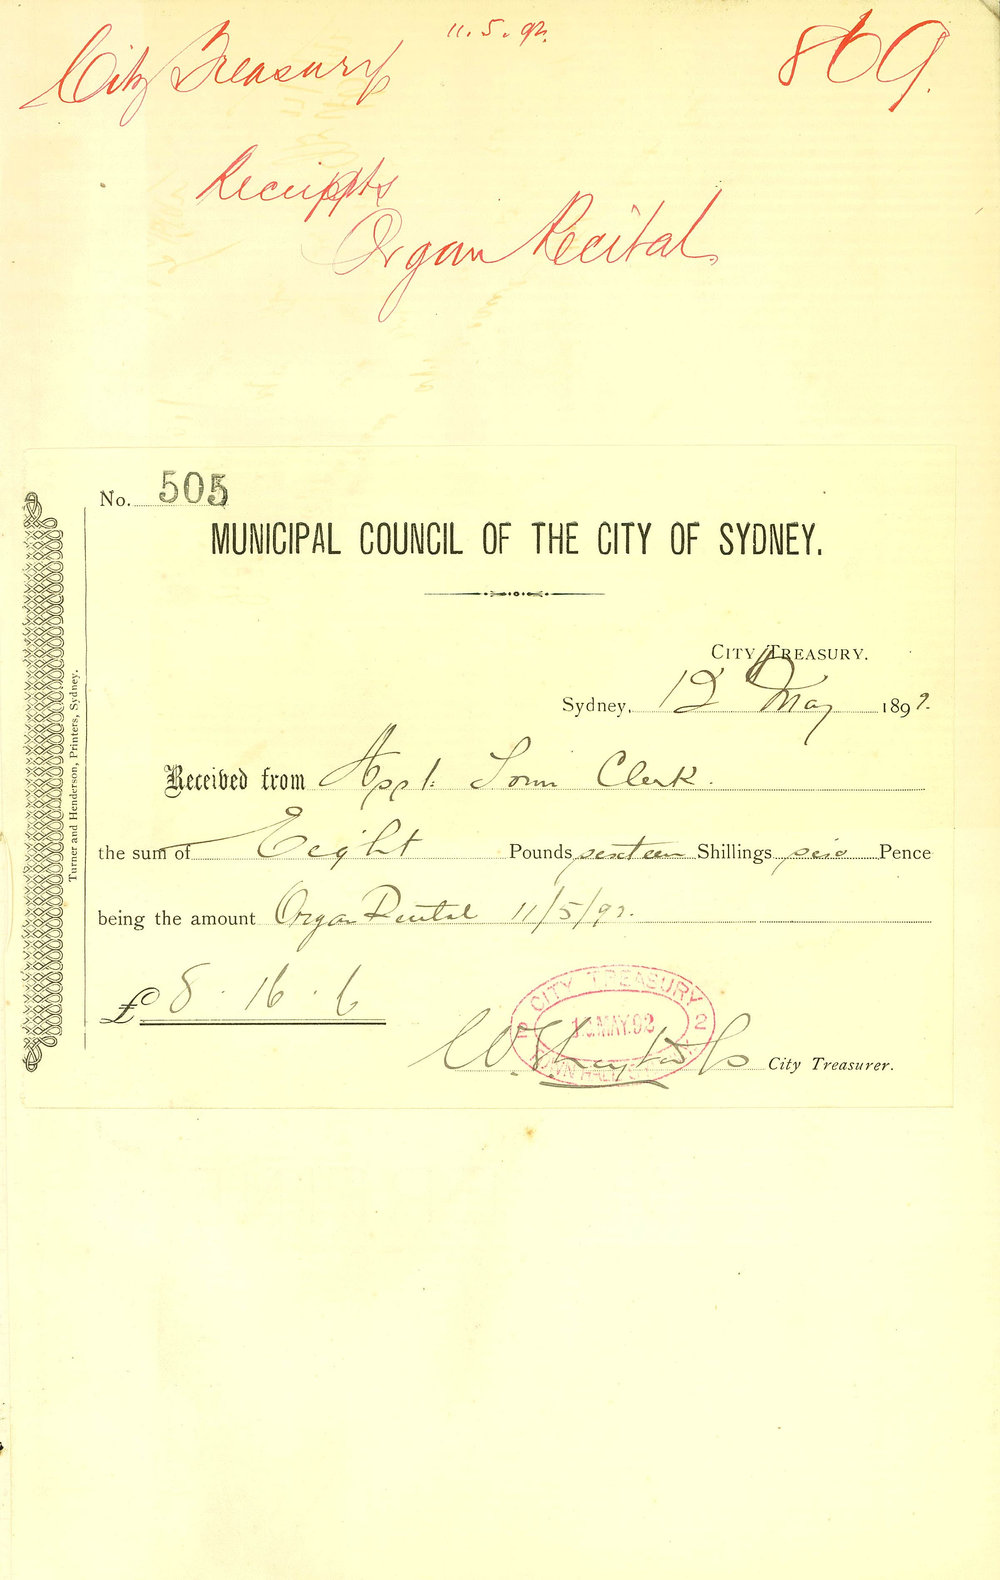 11.5.92.
City Treasury
869.
Receipts
Organ Recital.
No. 505
MUNICIPAL COUNCIL OF THE CITY OF SYDNEY.
CITY TREASURY.
Sydney, 12 May 1892.
Received from Town Clerk.
the sum of Eeight Pounds sixteen Shillings Pence
being the amount Organ Recital 11/5/92.
£ 8 . 16 . 6
CITY TREASURY
MAY.92
2
City Treasurer.
Turner and Henderson, Printers, Sydney.